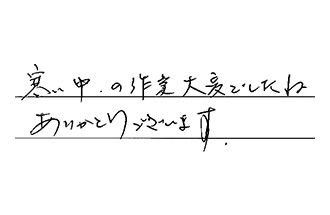 寒い中.の作業大変でしたね
ありがとうございます.